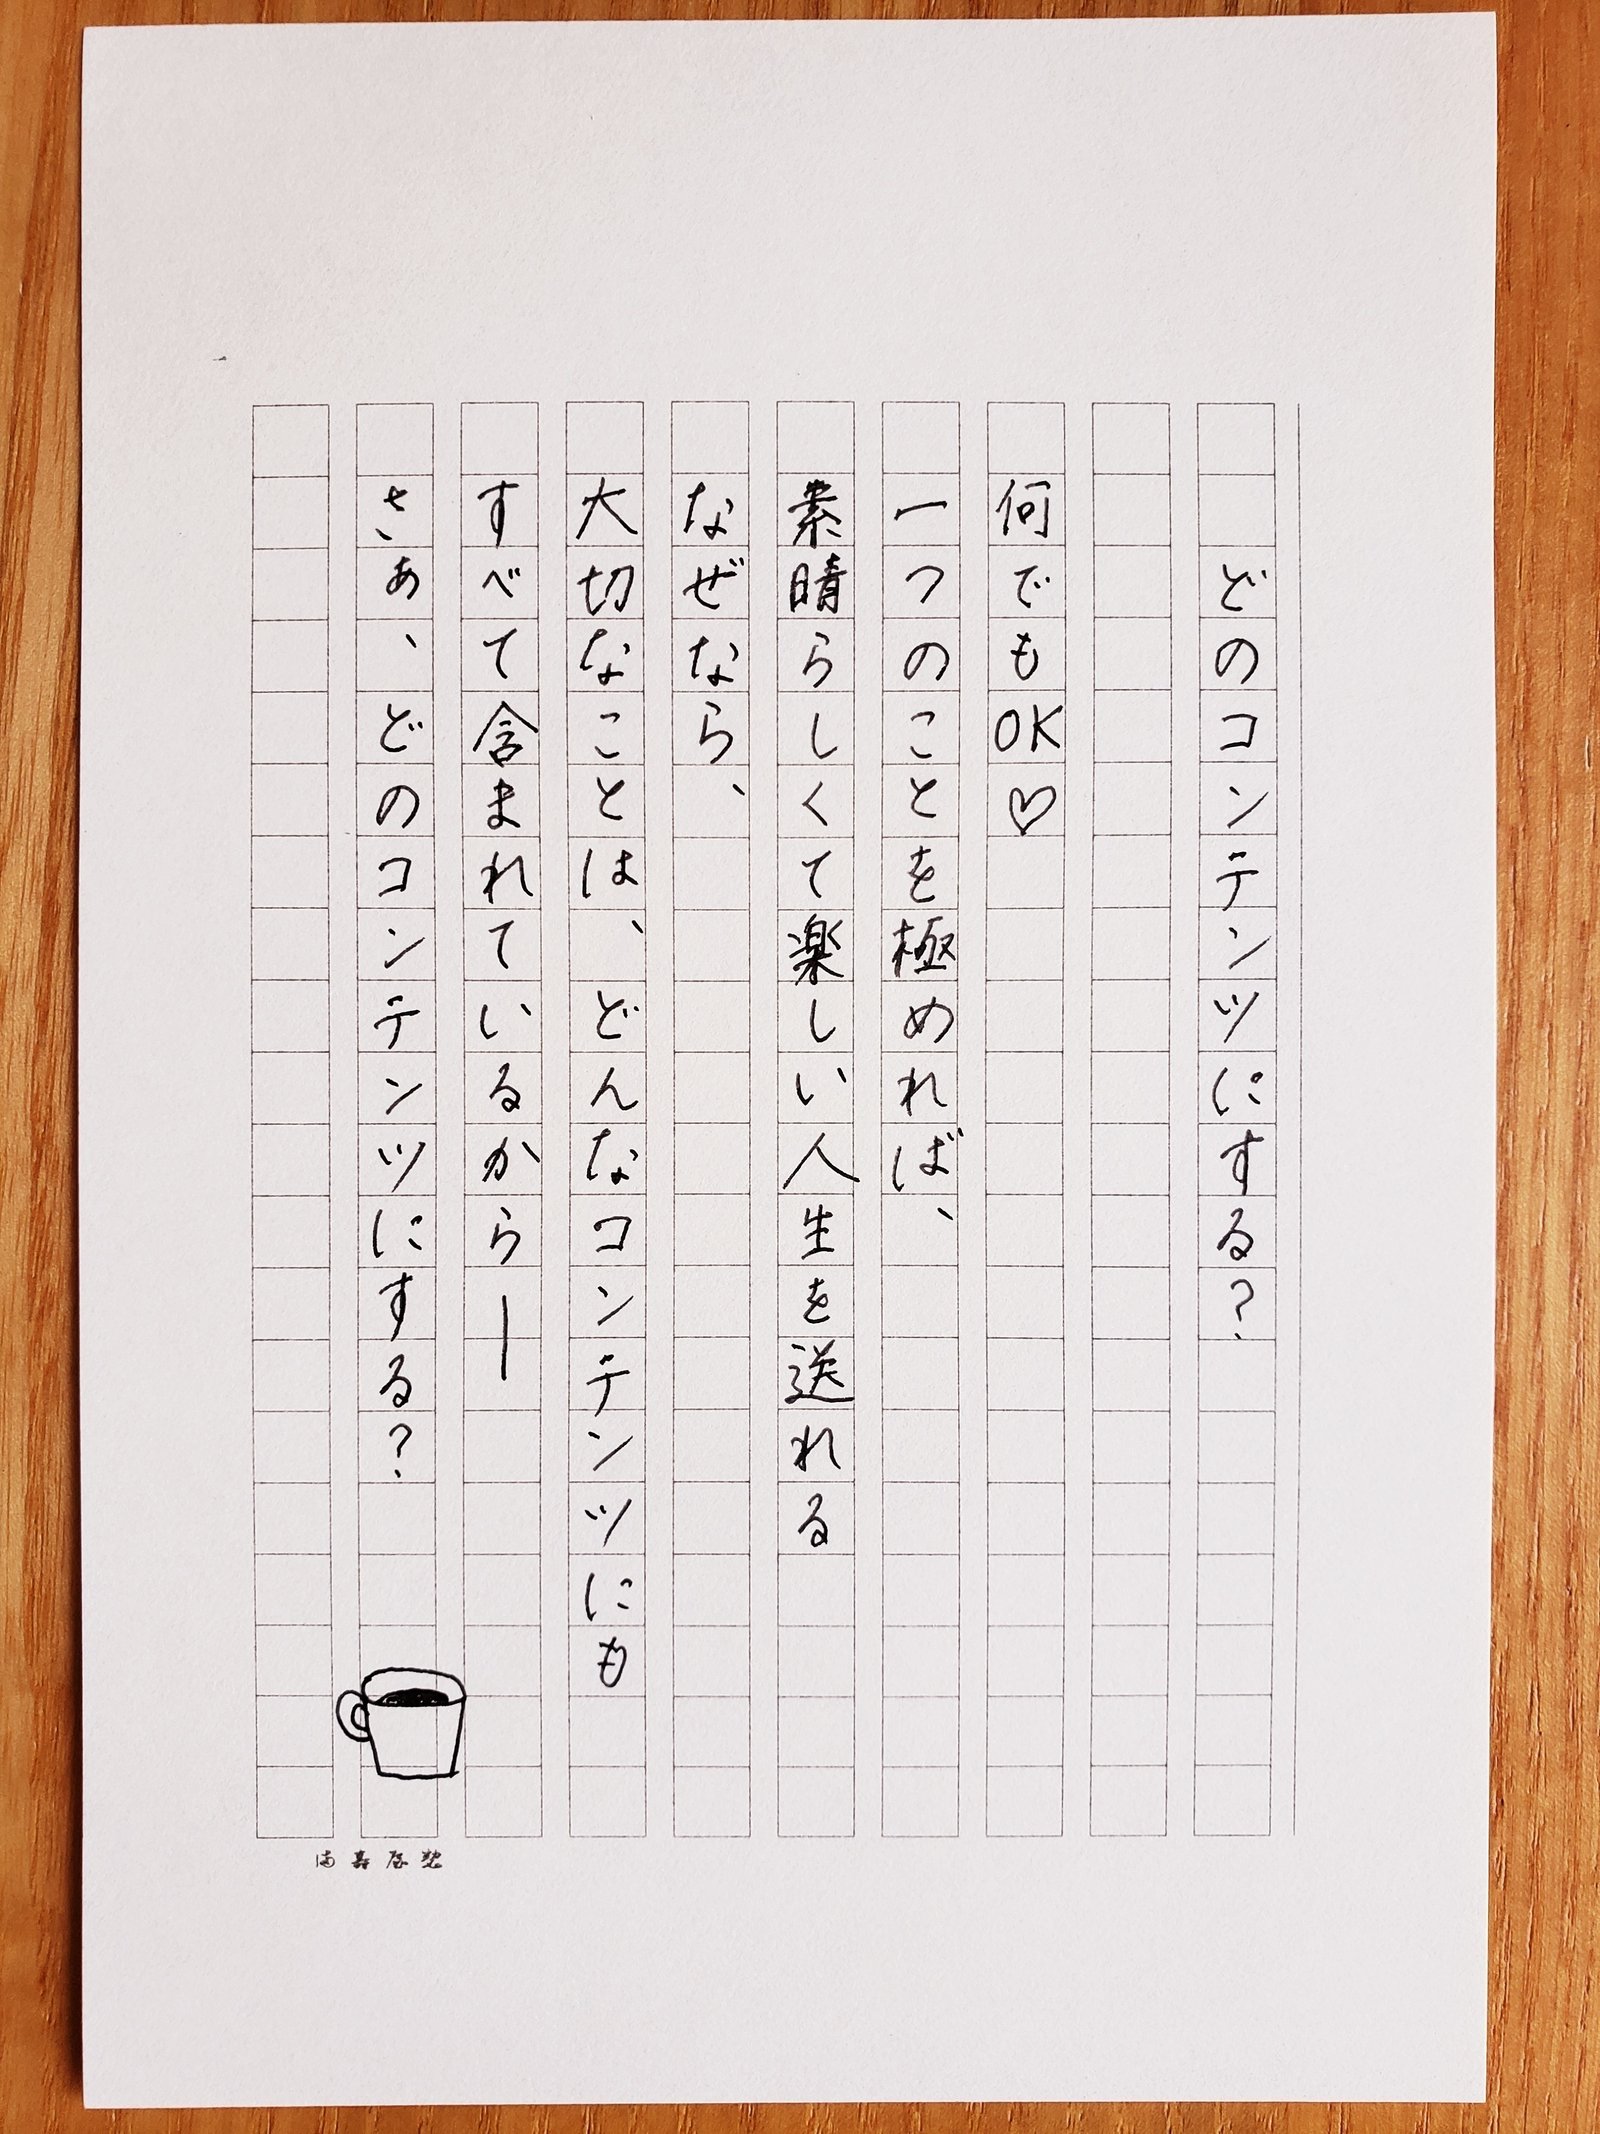 どのコンテンツにする?
何でもOK♡
一つのことを極めれば、
素晴らしくて楽しい人生を送れる
なぜなら、
大切なことは、どんなコンテンツにも
すべて含まれているから―
さあ、どのコンテンツにする?
満寿屋製